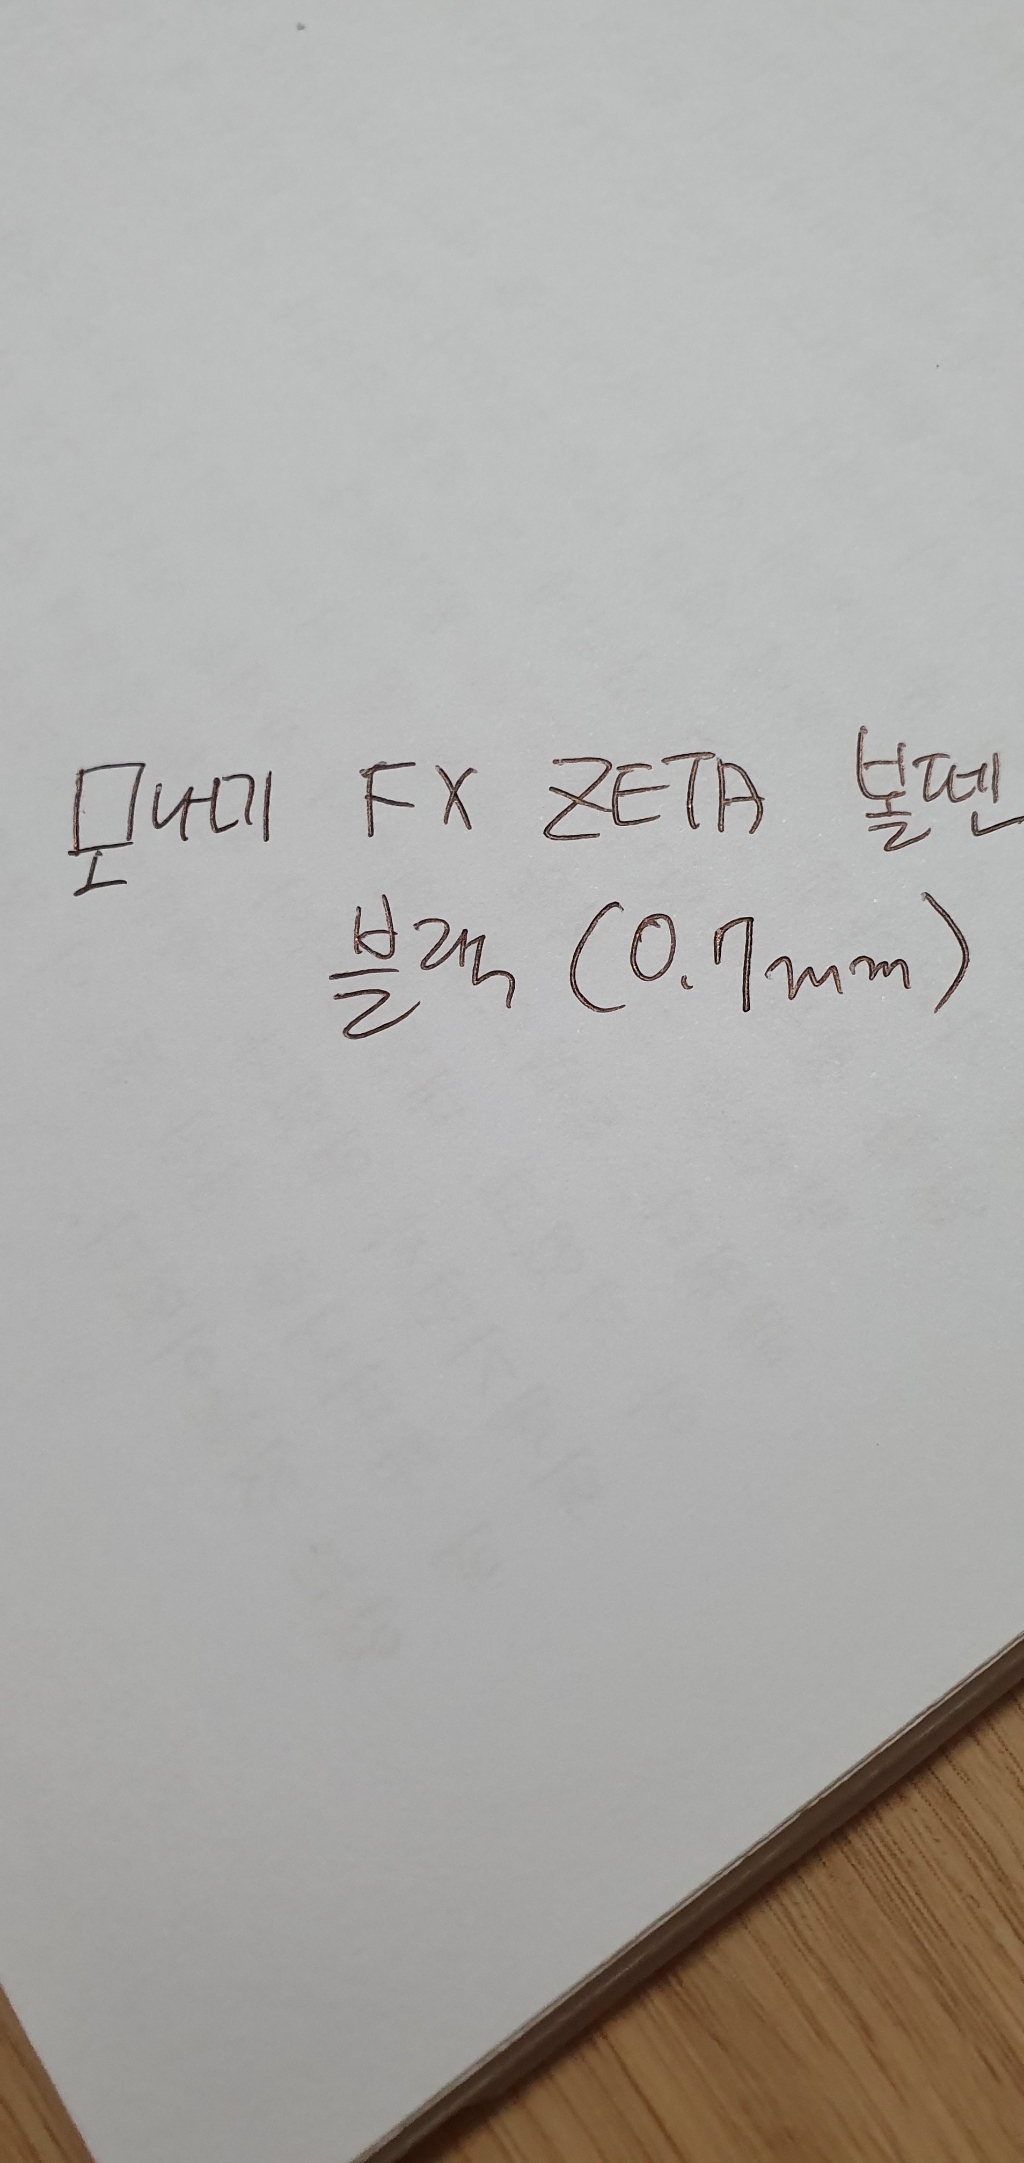 모나미 FX ZETA 볼펜
블랙 (0.7mm)